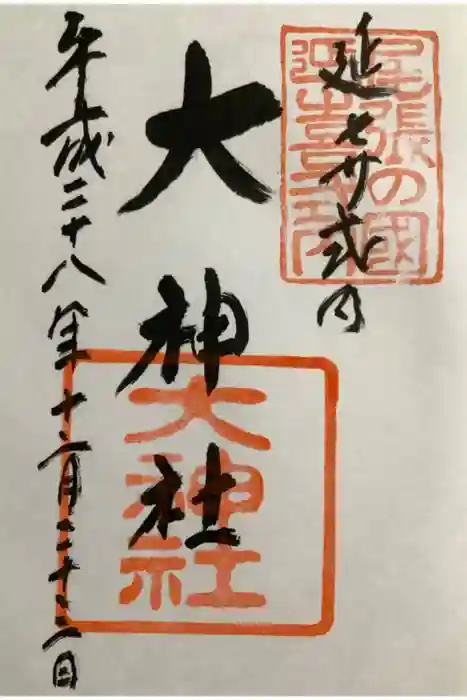 尾張の國
延喜式内
延㐂式内
大神社
大
神社
平成二十八年十二月二十二日